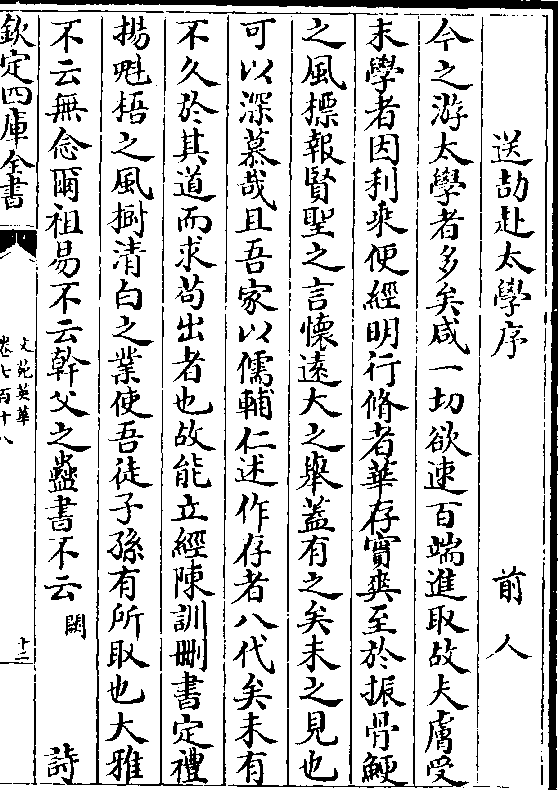 送劼赴太學序 前人
今之游太學者多矣咸一切欲速百端進取故夫膚受
末學者因利乘便經明行脩者華存實爽至於振骨鯁
之風摽報賢聖之言懷遠大之舉蓋有之矣未之見也
可以深慕哉且吾家以儒輔仁述作存者八代矣未有
不久於其道而求苟出者也故能立經陳訓刪書定禮
揚魁梧之風樹清白之業使吾徒子孫有所取也大雅
不云無忝爾祖易不云幹父之蠱書不云 闕 詩
欽定四庫全書
文苑英華
卷七百十八
十二